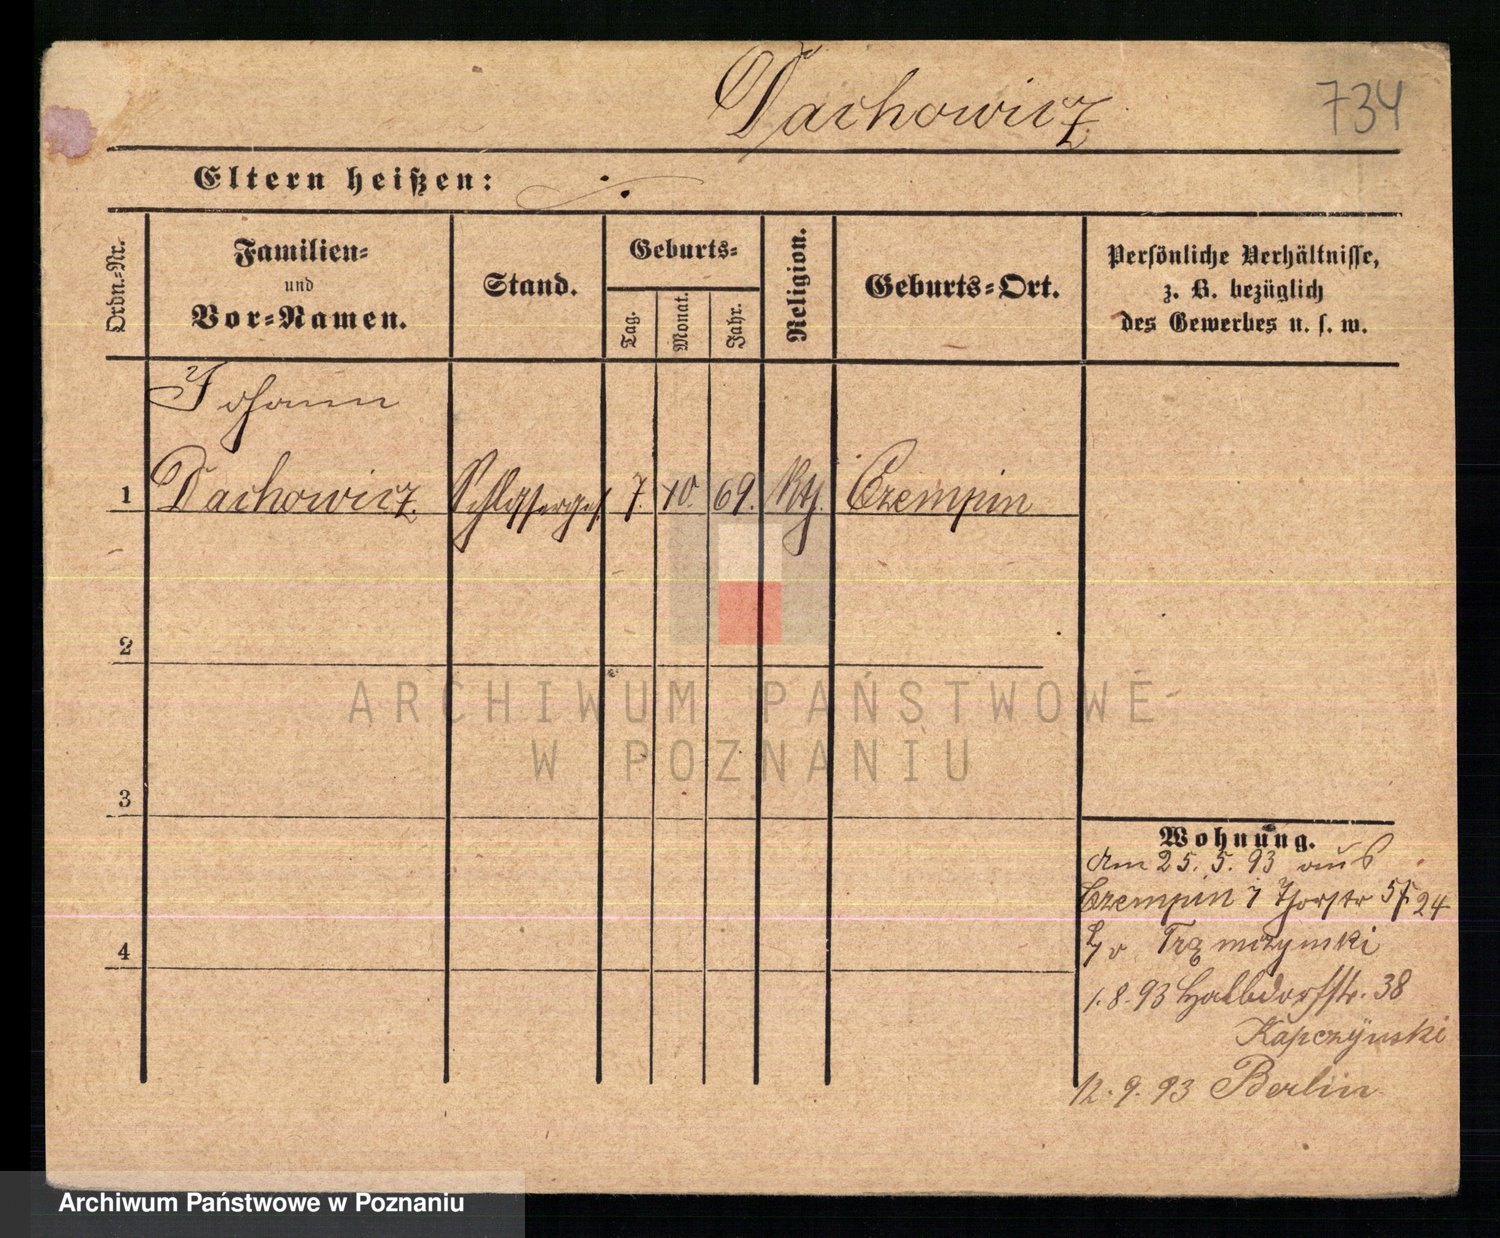 Dachowicz 734
Eltern heißen:
Ordn.-Nr.
Familien-
und
Vor-Namen.
Stand.
Geburts-
Tag.
Monat.
Jahr.
Religion.
Geburts-Ort.
Persönliche Verhältnisse,
z. B. bezüglich
des Gewerbes u. s. w.
Johann
1 Dachowicz Schlosserges. 7. 10. 69. Kth. Czempin
2
3
4
Wohnung.
am 25. 5. 93 aus
Czempin Thorstr 24
Trzmizynski
1. 8. 93 Halbdorfstr. 38
Kapczynski
12. 9. 93 Berlin
ARCHIWUM PAŃSTWOWE
W POZNANIU
Archiwum Państwowe w Poznaniu